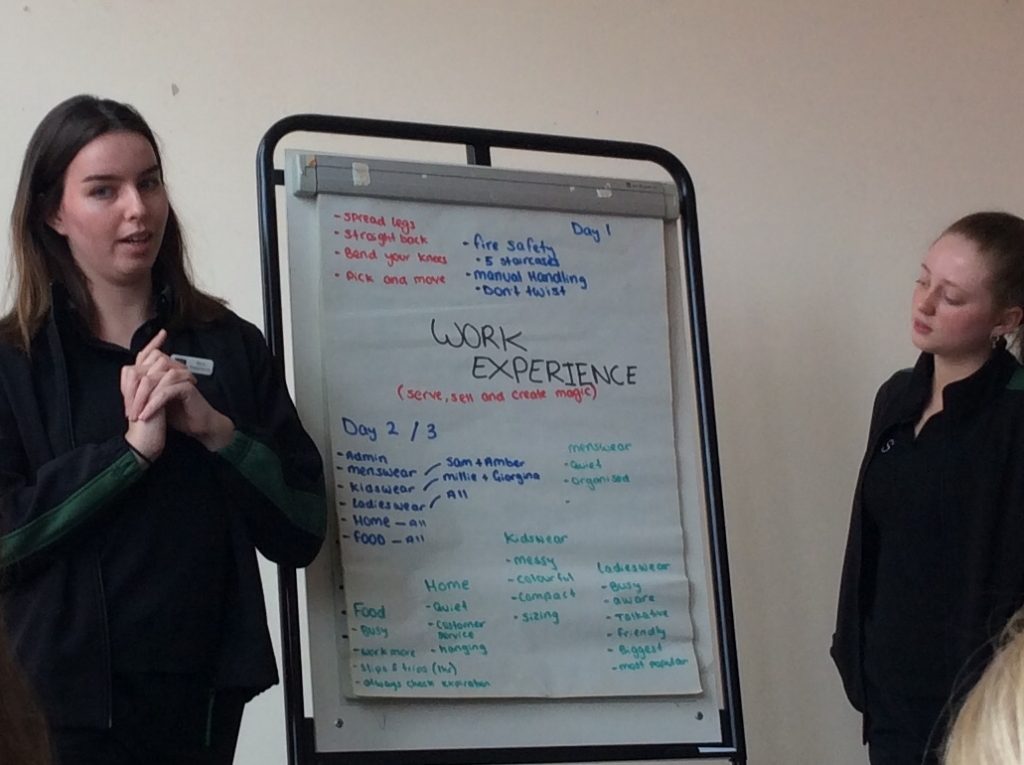 - spread legs
- straight back
- Bend your knees
- Pick and move
Day 1
- fire safety
• 5 staircases
- manual Handling
• Don't twist
WORK
EXPERIENCE
(serve, sell and create magic)
Day 2 / 3
- Admin
- menswear
- Kidswear
- Ladieswear
- Home - All
- FOOD - All
Sam + Amber
millie + Giorgina
All
menswear
- Quiet
- organised
-
Kidswear
- messy
- colourful
- compact
- sizing
Ladieswear
- Busy
- aware
- Talkative
- friendly
- Biggest
- most popular
Home
- Quiet
- Customer
service
- hanging
Food
- Busy
- work more
- slips & trips (1hr)
- always check expiration